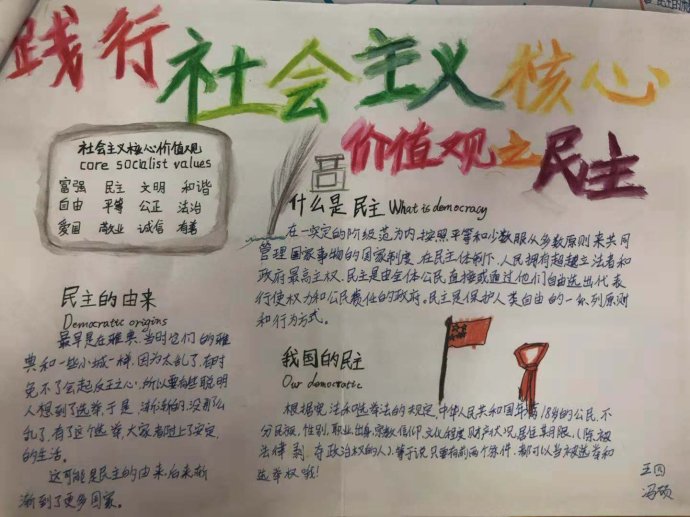 践行社会主义核心
价值观之民主
社会主义核心价值观
core socialist values
富强 民主 文明 和谐
自由 平等 公正 法治
爱国 敬业 诚信 友善
什么是民主 What is democracy
在一定的阶级范为内,按照平等和少数服从多数原则来共同
管理国家事物的国家制度。在民主体制下,人民拥有超越立法者和
政府最高主权。民主是由全体公民直接或通过他们自由选出代表
行使权力和公民责任的政府。民主是保护人类自由的一系列原则
和行为方式。
民主的由来
Democratic origins
最早是在雅典,当时它们的雅
典和一些小城一样,因为太乱了,有时
免不了会起反正心,所以要有些聪明
人想到了选举,于是,渐渐的,没那么
乱了,有了这个选举,大家都过上了安定
的生活。
这可能是民主的由来,后来渐
渐到了更多国家。
我国的民主
Our democratic
根据宪法和选举法的规定,中华人民共和国年满18岁的公民,不
分民族,性别,职业,出身,宗教信仰,文化程度,财产状况,居住期限,(除被
法律剥夺政治权的人)等于说只要有前两个条件,都可以当被选举和
选举权哦!
王四
冯硕